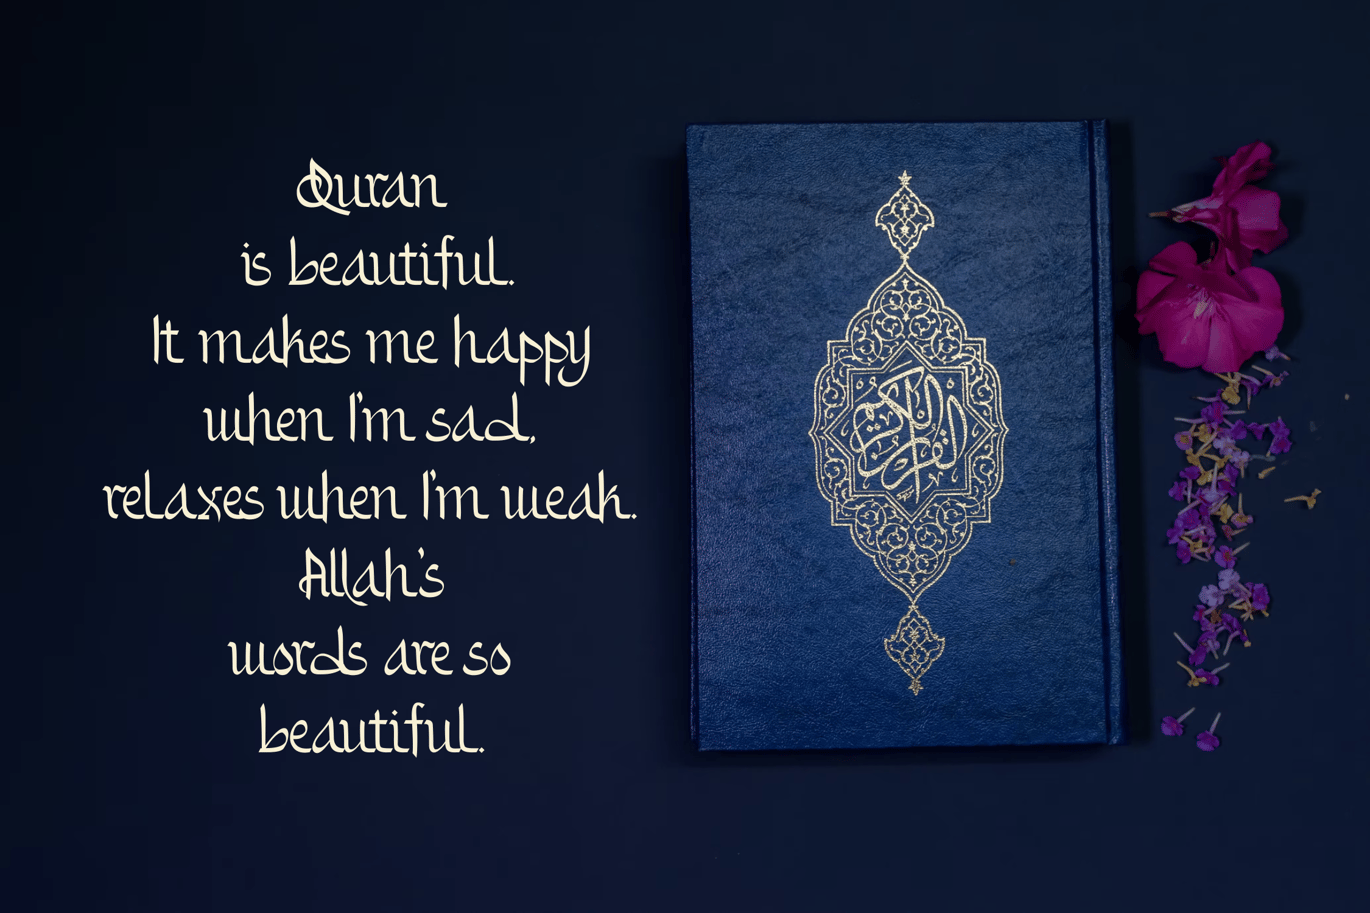 Quran
is beautiful.
It makes me happy
when I'm sad,
relaxes when I'm weak.
Allah's
words are so
beautiful.
القرآن الكريم